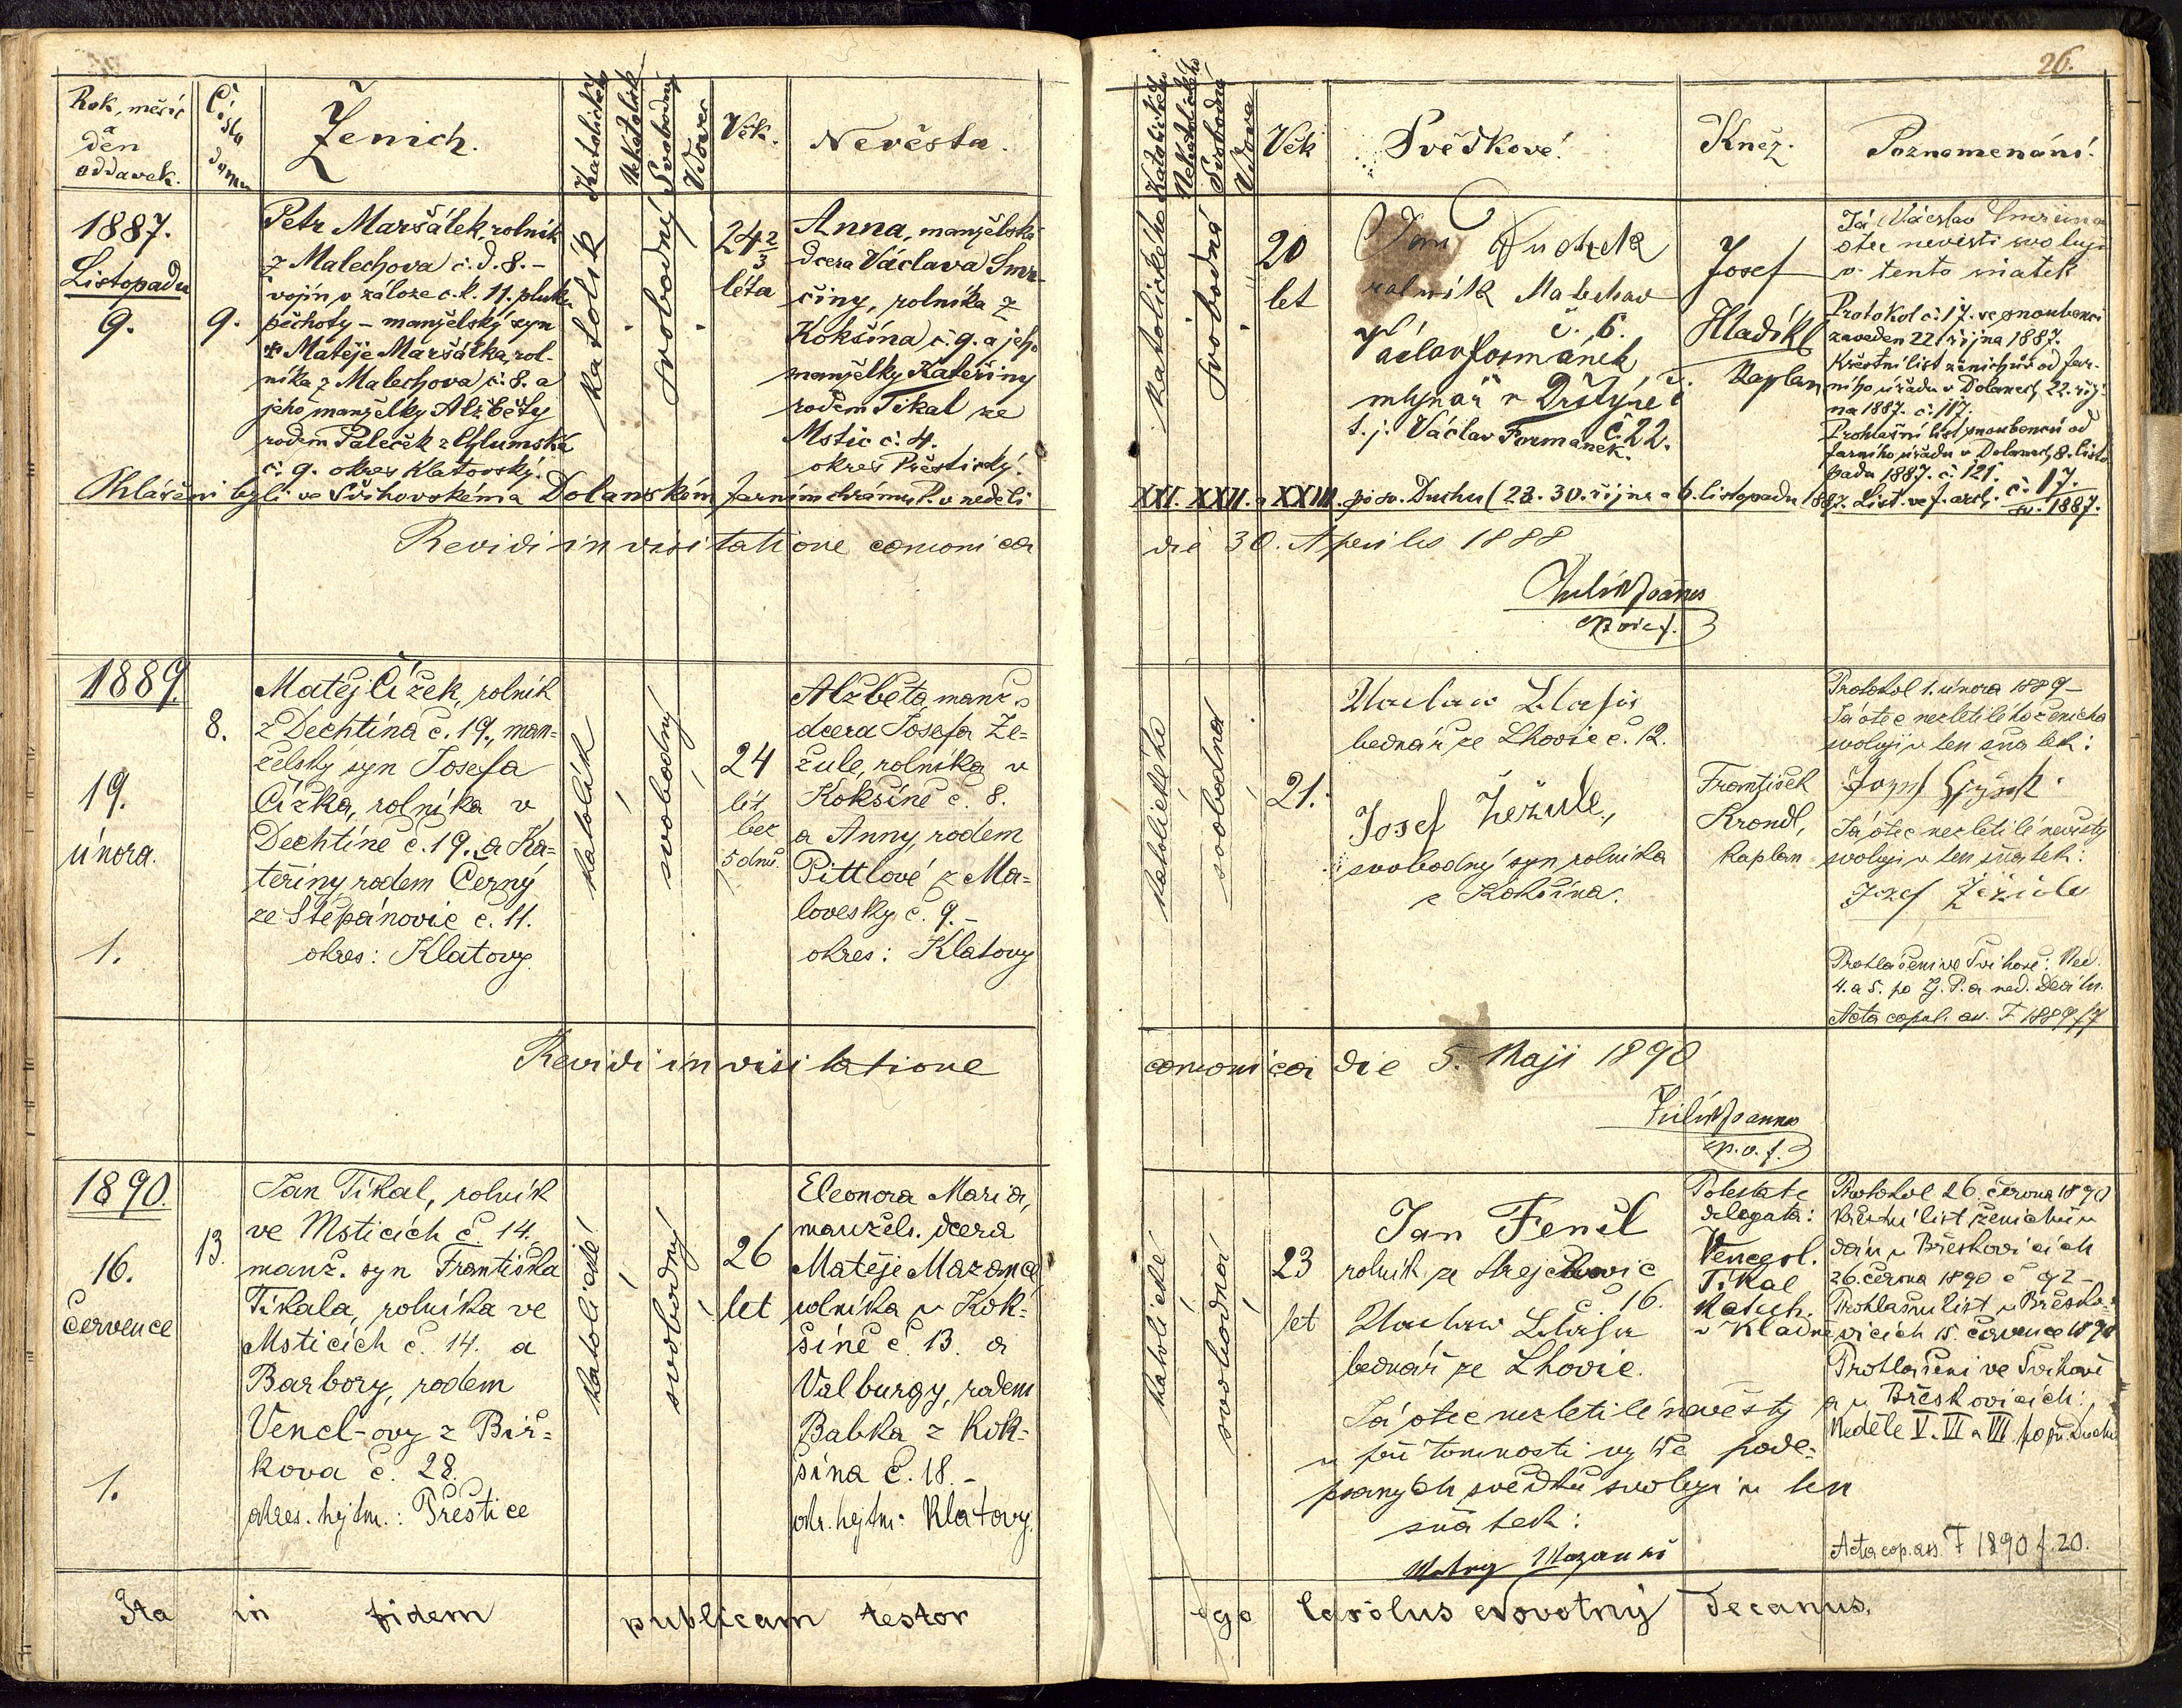 26.
Rok, měsíc
a
den
oddavek.
Čísla
domu
Ženich.
Katolický
Nekatolík
Svobodný
Vdovec
Věk.
Nevěsta.
Katolického
Nekatolického
Svobodná
Vdova
Věk
Svědkové.
Kněz.
Poznamenání.
1887.
Listopadu
9.
9.
Petr Maršálek, rolník
z Malechova č. d. 8. –
vojín v záloze c. k. 11. pluku
pěchoty – manželský syn
Matěje Maršálka, rol-
níka z Malechova č. 8. a
jeho manželky Alžběty
rodem Paleček z Chlumská
č. 9. okres Klatovský.
katolík
svobodný
24 2/3
léta
Anna, manželská
dcera Václava Smr-
činy, rolníka z
Kokšína č. 9. a jeho
manželky Kateřiny
rodem Tikal ze
Mstic č. 4.
okres Přeštický.
katolického
svobodná
20
let
Jan Dudek
rolník Malechov
č. 6.
Václav Formánek
mlynář v Drštýně
t. j. Václav Formanek. č. 22.
Josef
Hladík
Kaplan
Já Václav Smrčina
otec nevěsti svoluji
v tento sňatek
Protokol č. 17. se snoubenci
zaveden 22. října 1887.
Křestní list ženichův od far-
ního úřadu v Dolanech 22. říj-
na 1887. č. 117.
Prohlašní list snoubenců od
farního úřadu v Dolanech 8. listo
padu 1887. č. 121.
Ohlášeni byli ve Švihovském a Dolanském farním chrámu P. v neděli
XXI. XXII. a XXIII. po sv. Duchu (23. 30. října a 6. listopadu 1887. List. ve f. arch. č. 17. 1887.
Revidi in visitatione canonica
die 30. Aprilis 1888
1889.
19.
února.
1.
8.
Matěj Čížek, rolník
z Dechtína č. 19., man=
želský syn Josefa
Čížka, rolníka v
Dechtíně č. 19. a Ka=
teřiny, rodem Černý
ze Štěpánovic č. 11.
okres: Klatovy
katolík
svobodný
24
lét
bez
5 dnů.
Alžběta, manž.
dcera Josefa Že=
žule, rolníka v
Kokšíně č. 8.
a Anny, rodem
Pittlové z Ma=
lovesky č. 9. –
okres: Klatovy
katolického
svobodná
21.
Václav
bednář ze Lhovic č. 12.
Josef Žežule,
svobodný syn rolníka
z Kokšína.
František
Krondl,
Kaplan
Protokol 1. února 1889 –
Já otec nezletilého ženicha
svoluji v ten sňatek:
Já otec nezletilé nevěsty
svoluji v ten sňatek:
Jozef Žežule
Prohlášeni ve Švihově: Ned.
4. a 5. po Zj. P. a ned. devítn.
Acta copul. as. F 1889 f 7
Revidi in visitatione
canonica die 5. Maji 1890
1890.
16.
Července
1.
13.
Jan Tikal, rolník
ve Msticích č. 14.
manž. syn Františka
Tikala, rolníka ve
Msticích č. 14. a
Barbory, rodem
Vencl-ovy z Bir=
kova č. 28.
okres. hejtm.: Přeštice
katolické
svobodný
26
let
Eleonora Maria,
manžels. dcera
Matěje Mazance
rolníka v Kok-
šíně č. 13. a
Valburgy, rodem
Babka z Kok-
šína č. 18. –
okr. hejtm: Klatovy.
katolické
svobodná
23
let
Jan Fencl
rolník ze Strejčkovic
č. 16.
Václav
bednář ze Lhovic.
Já otec nezletilé nevěsty
u přítomnosti výše pode-
psaných svědků svoluji v ten
sňatek:
Potestate
delegata:
Vencesl.
Tikal
v Kladně
Protokol 26. června 1890
Křestní list ženichův
dán v Břeskovicích
26. června 1890 č 92 –
Prohlašní list v Břesko-
vicích 15. července 1890
Prohlášeni ve Švihově
a v Břeskovicích:
Neděle V. VI a VII po sv. Duchu
Acta cop. as. F 1890 f. 20.
Ita in fidem publicam testor
ego Carolus Novotný Decanus.